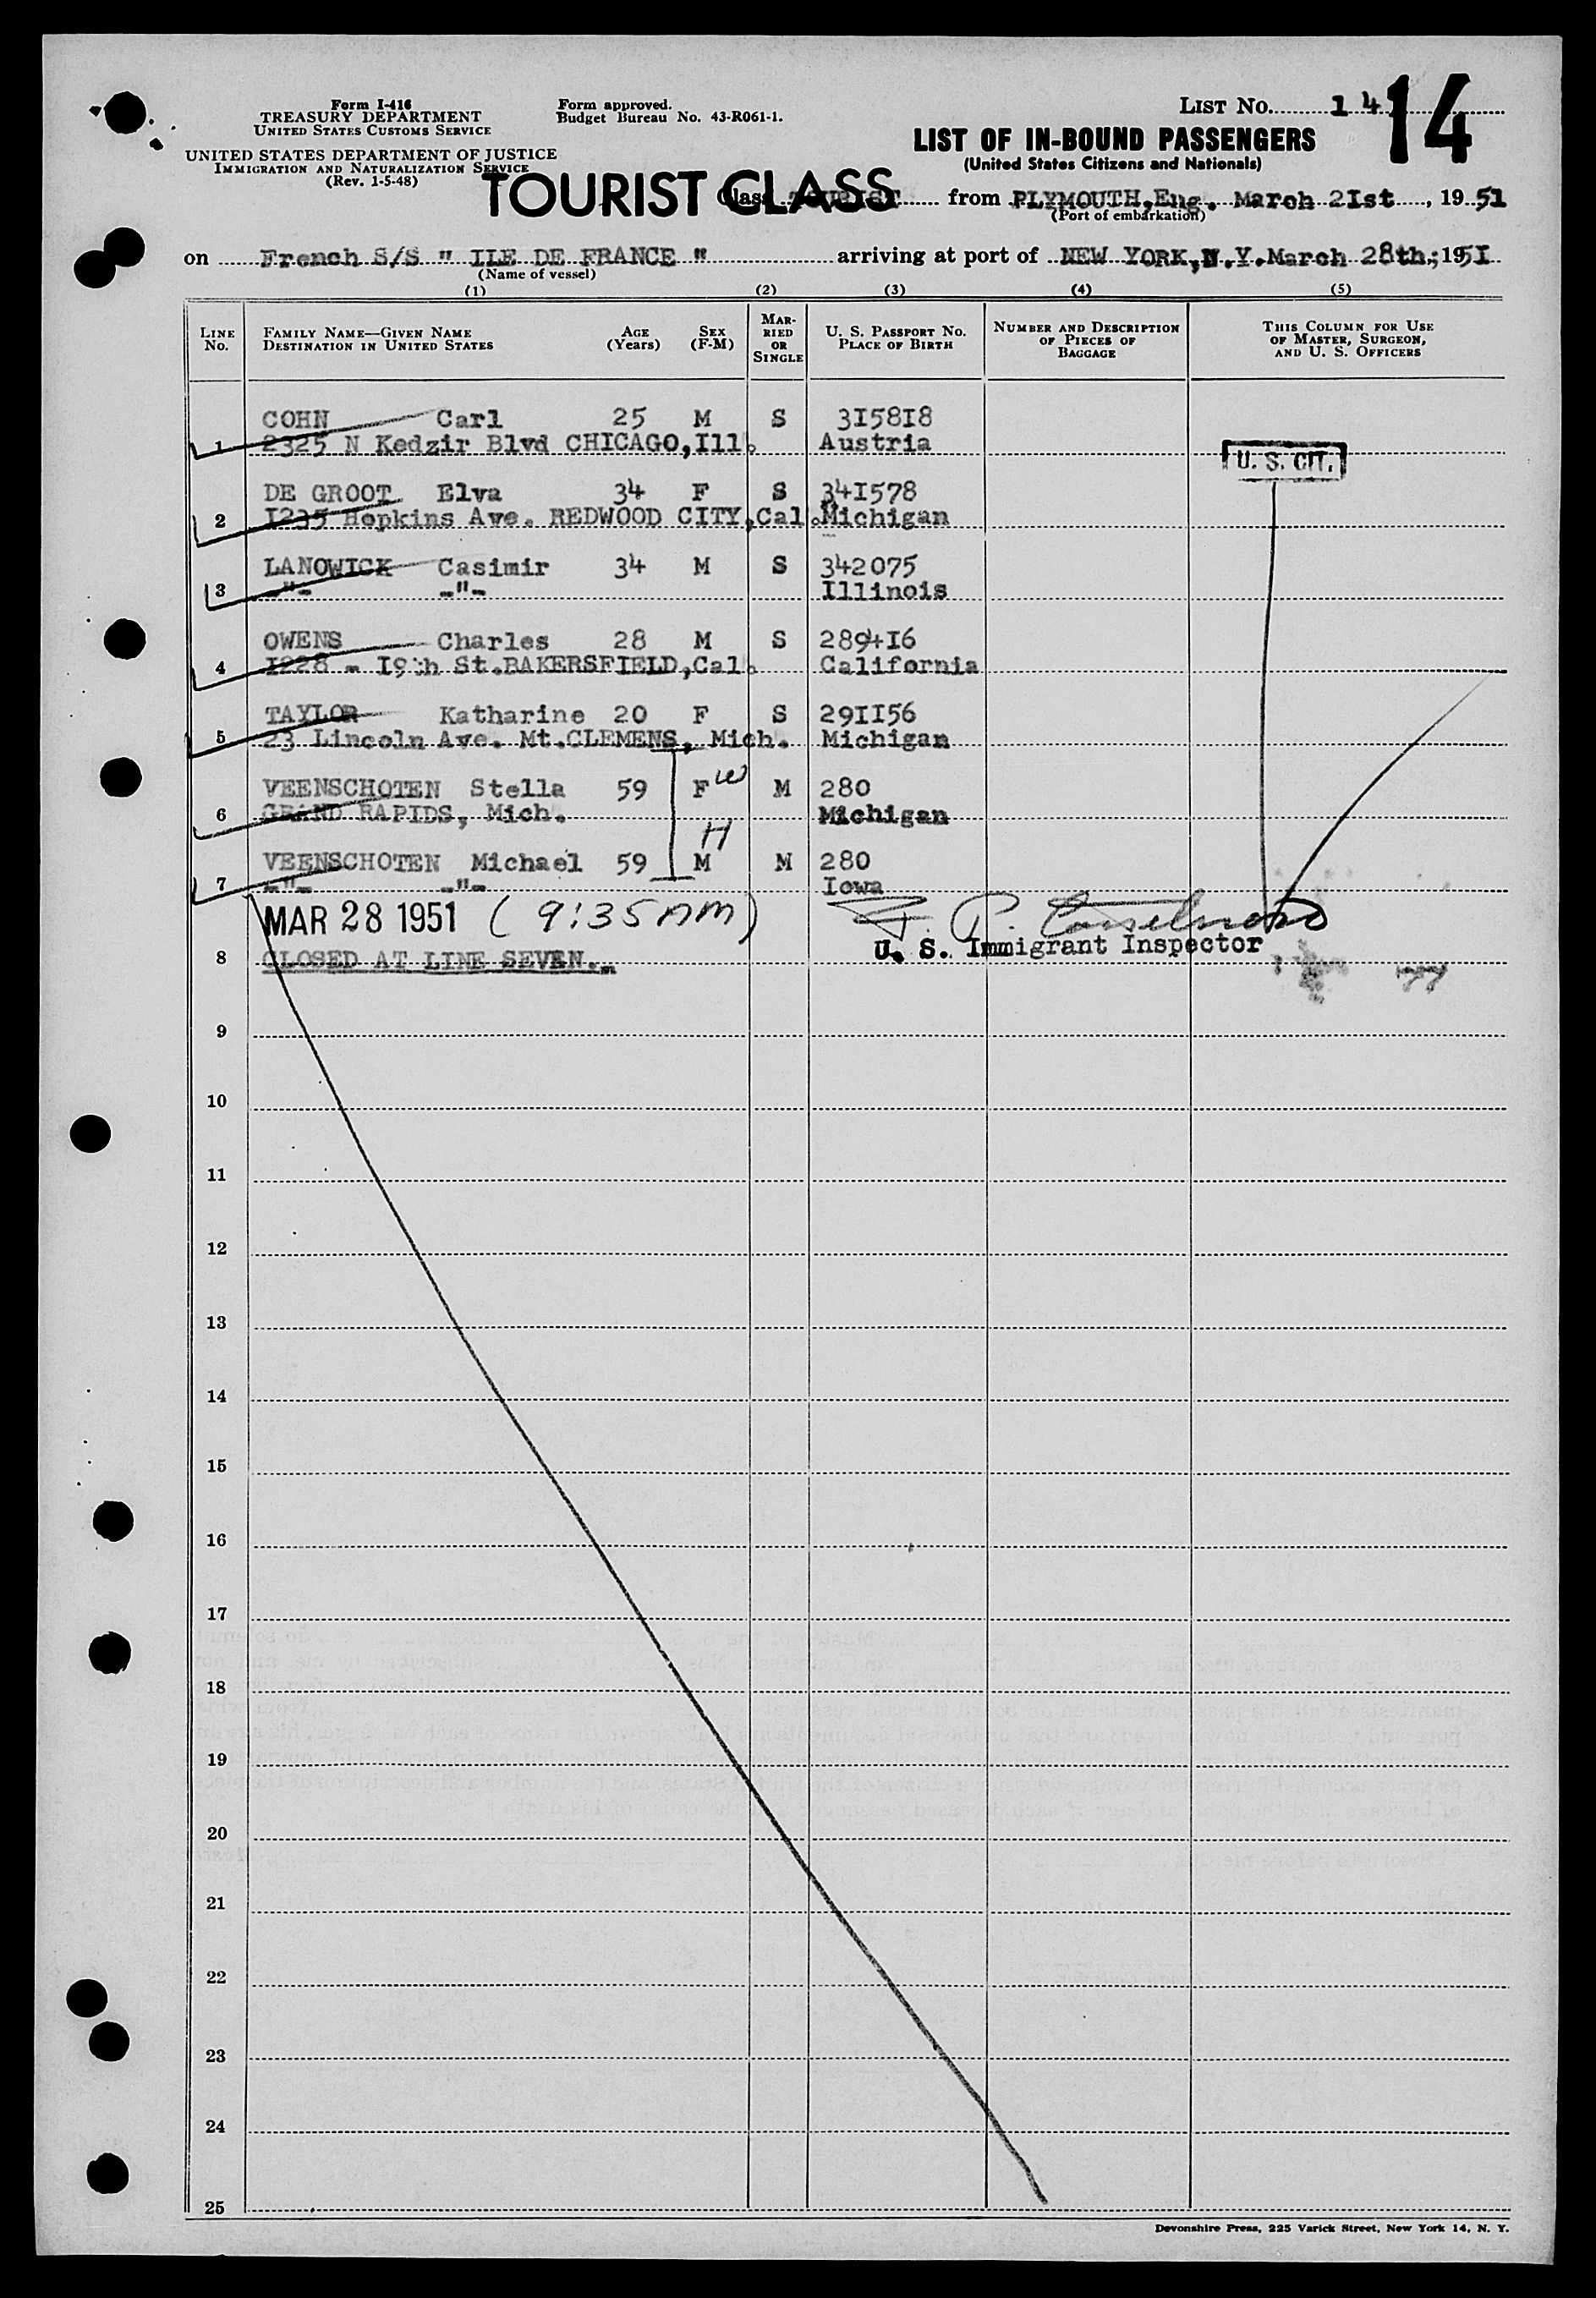 Form I-416
TREASURY DEPARTMENT
UNITED STATES CUSTOMS SERVICE
UNITED STATES DEPARTMENT OF JUSTICE
IMMIGRATION AND NATURALIZATION SERVICE
(Rev. 1-5-48)
Form approved.
Budget Bureau No. 43-R061-1.
LIST No. 14
14
LIST OF IN-BOUND PASSENGERS
(United States Citizens and Nationals)
TOURIST CLASS
Class TOURIST from PLYMOUTH,Eng. March 2Ist, 1951
(Port of embarkation)
on French S/S " ILE DE FRANCE " arriving at port of NEW YORK,N.Y.March 28th.;195I
(Name of vessel)
(1) (2) (3) (4) (5)
LINE No. FAMILY NAME—GIVEN NAME DESTINATION IN UNITED STATES AGE (Years) SEX (F-M) MARRIED OR SINGLE U. S. PASSPORT NO. PLACE OF BIRTH NUMBER AND DESCRIPTION OF PIECES OF BAGGAGE THIS COLUMN FOR USE OF MASTER, SURGEON, AND U. S. OFFICERS
COHN Carl 25 M S 3I58I8
1 2325 N Kedzir Blvd CHICAGO,Ill. Austria
U. S. CIT.
DE GROOT Elva 34 F S 34I578
2 I235 Hopkins Ave. REDWOOD CITY,Cal. Michigan
LANOWICK Casimir 34 M S 342075
3 -"- -"- Illinois
OWENS Charles 28 M S 2894I6
4 I228 - I9th St.BAKERSFIELD,Cal. California
TAYLOR Katharine 20 F S 29II56
5 23 Lincoln Ave. Mt.CLEMENS, Mich. Michigan
VEENSCHOTEN Stella 59 F W M 280
6 GRAND RAPIDS, Mich. Michigan
H
VEENSCHOTEN Michael 59 M M 280
7 -"- -"- Iowa
MAR 28 1951 (9:35AM)
U. S. Immigrant Inspector
8 CLOSED AT LINE SEVEN.-
9
10
11
12
13
14
15
16
17
18
19
20
21
22
23
24
25
Devonshire Press, 225 Varick Street, New York 14, N. Y.